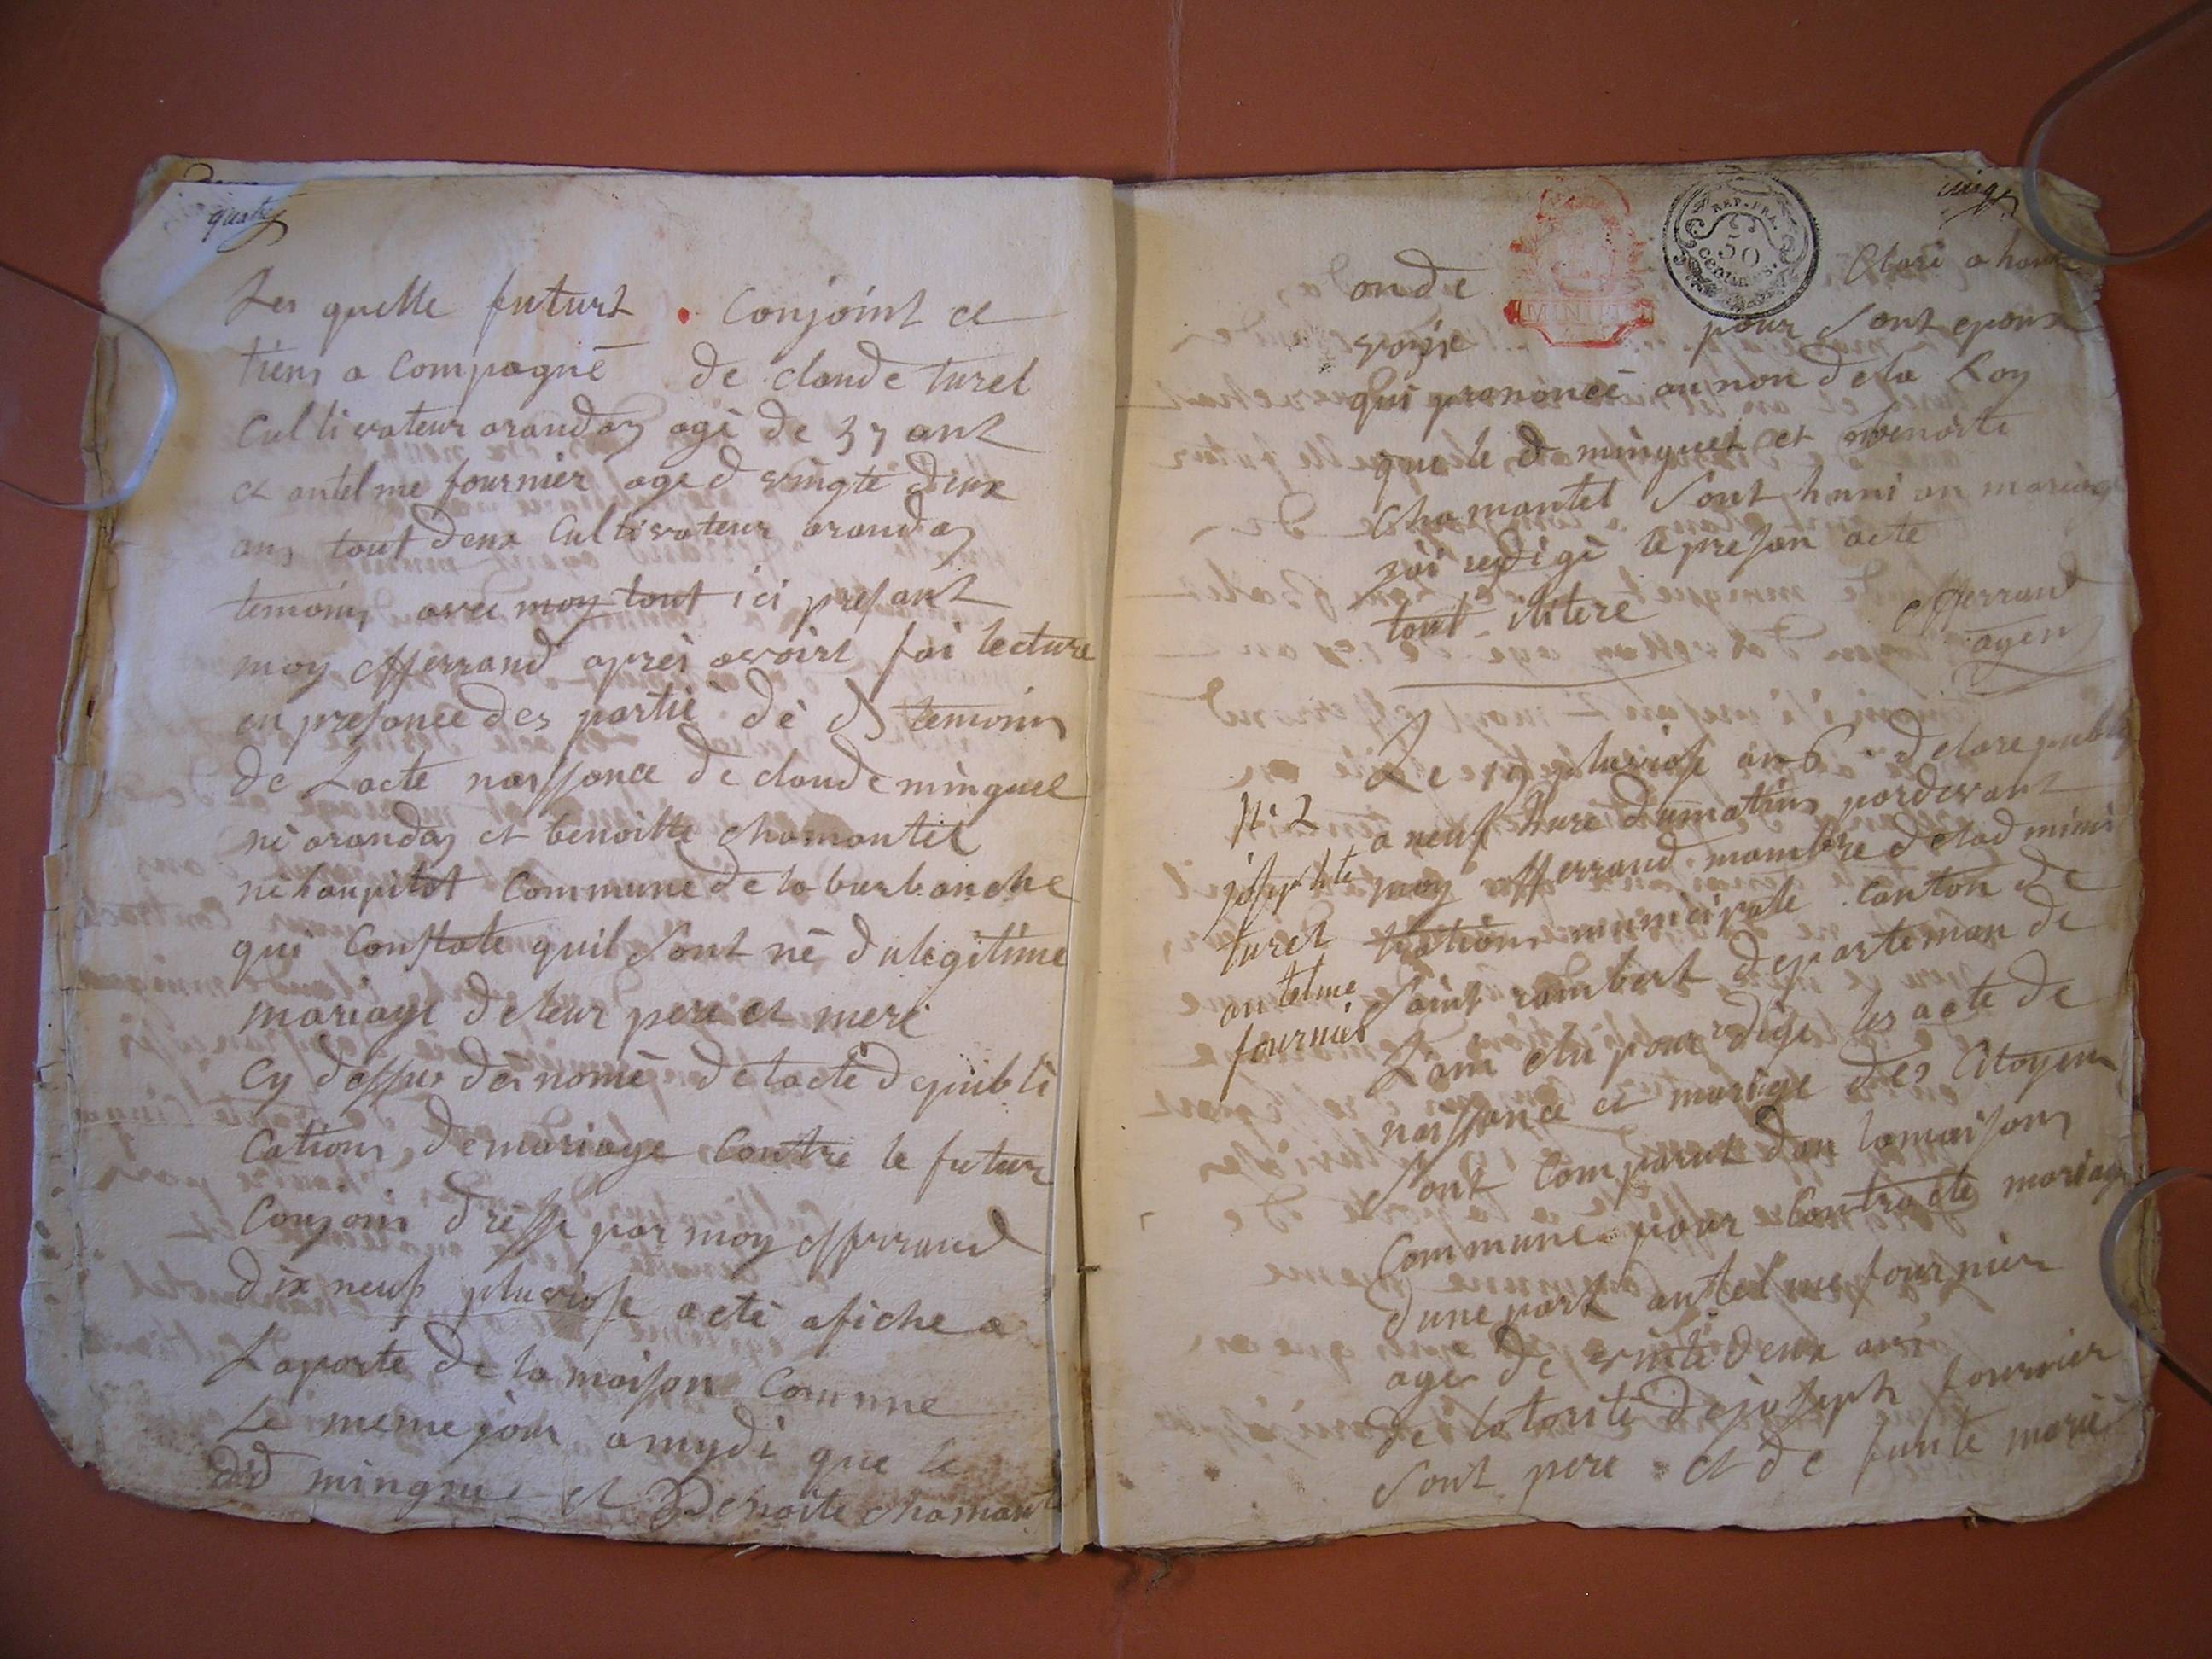 quatre
Les quelle futurt Conjoint ce
tiens a Compagné de claude turel
Cultivateur aranday agé de 37 ant
et antelme fournier age d vingte deux
ans tout deux Cultivateur aranday
temoins avec moy tout ici presant
moy Offerrand aprés avoirt fai lecture
en presance des partié dé dt temoins
de Lacte naissance de claude minguel
né aranday et benoitte chamantel
né haupitot Commune de la burbanche
qui Constate quil sont né du legitime
mariage de leur pere et mere
Cy dessus de nomé de lacte de publi
cations de mariage Contre le futur
Conjoin dresse par moy Offerrand
dix neuf pluviose acte afiche a
Laporte de la maison Comune
Le meme jour a mydi que le
dd mingue et Benoite chamant
cinq
REP. FRA.
50
CENTIMES.
onde Clare a haut
voixe pour sont epoux
qui prononcé au non de la Loy
que le d minguet et benoite
chamantel sont huni an mariag
jai redigé le presan acte
tout ilitere Offerrand
agen
Le 19 pluviose an 6 de la republi
N: 2 a neuf hure du matins pardevant
josephte moy Offerrand mambre de lad minis
turel trations municipale canton de
antelme saint rambert departeman de
fournier Lain elu pour redige les acte de
naissance et mariage des Citoyens
sont Comparut dan lamaisons
Commune pour Contracte mariage
dune part antelme fournier
age de vinte deux ans
de latorité de joseph fournier
sont pere et de funte marie